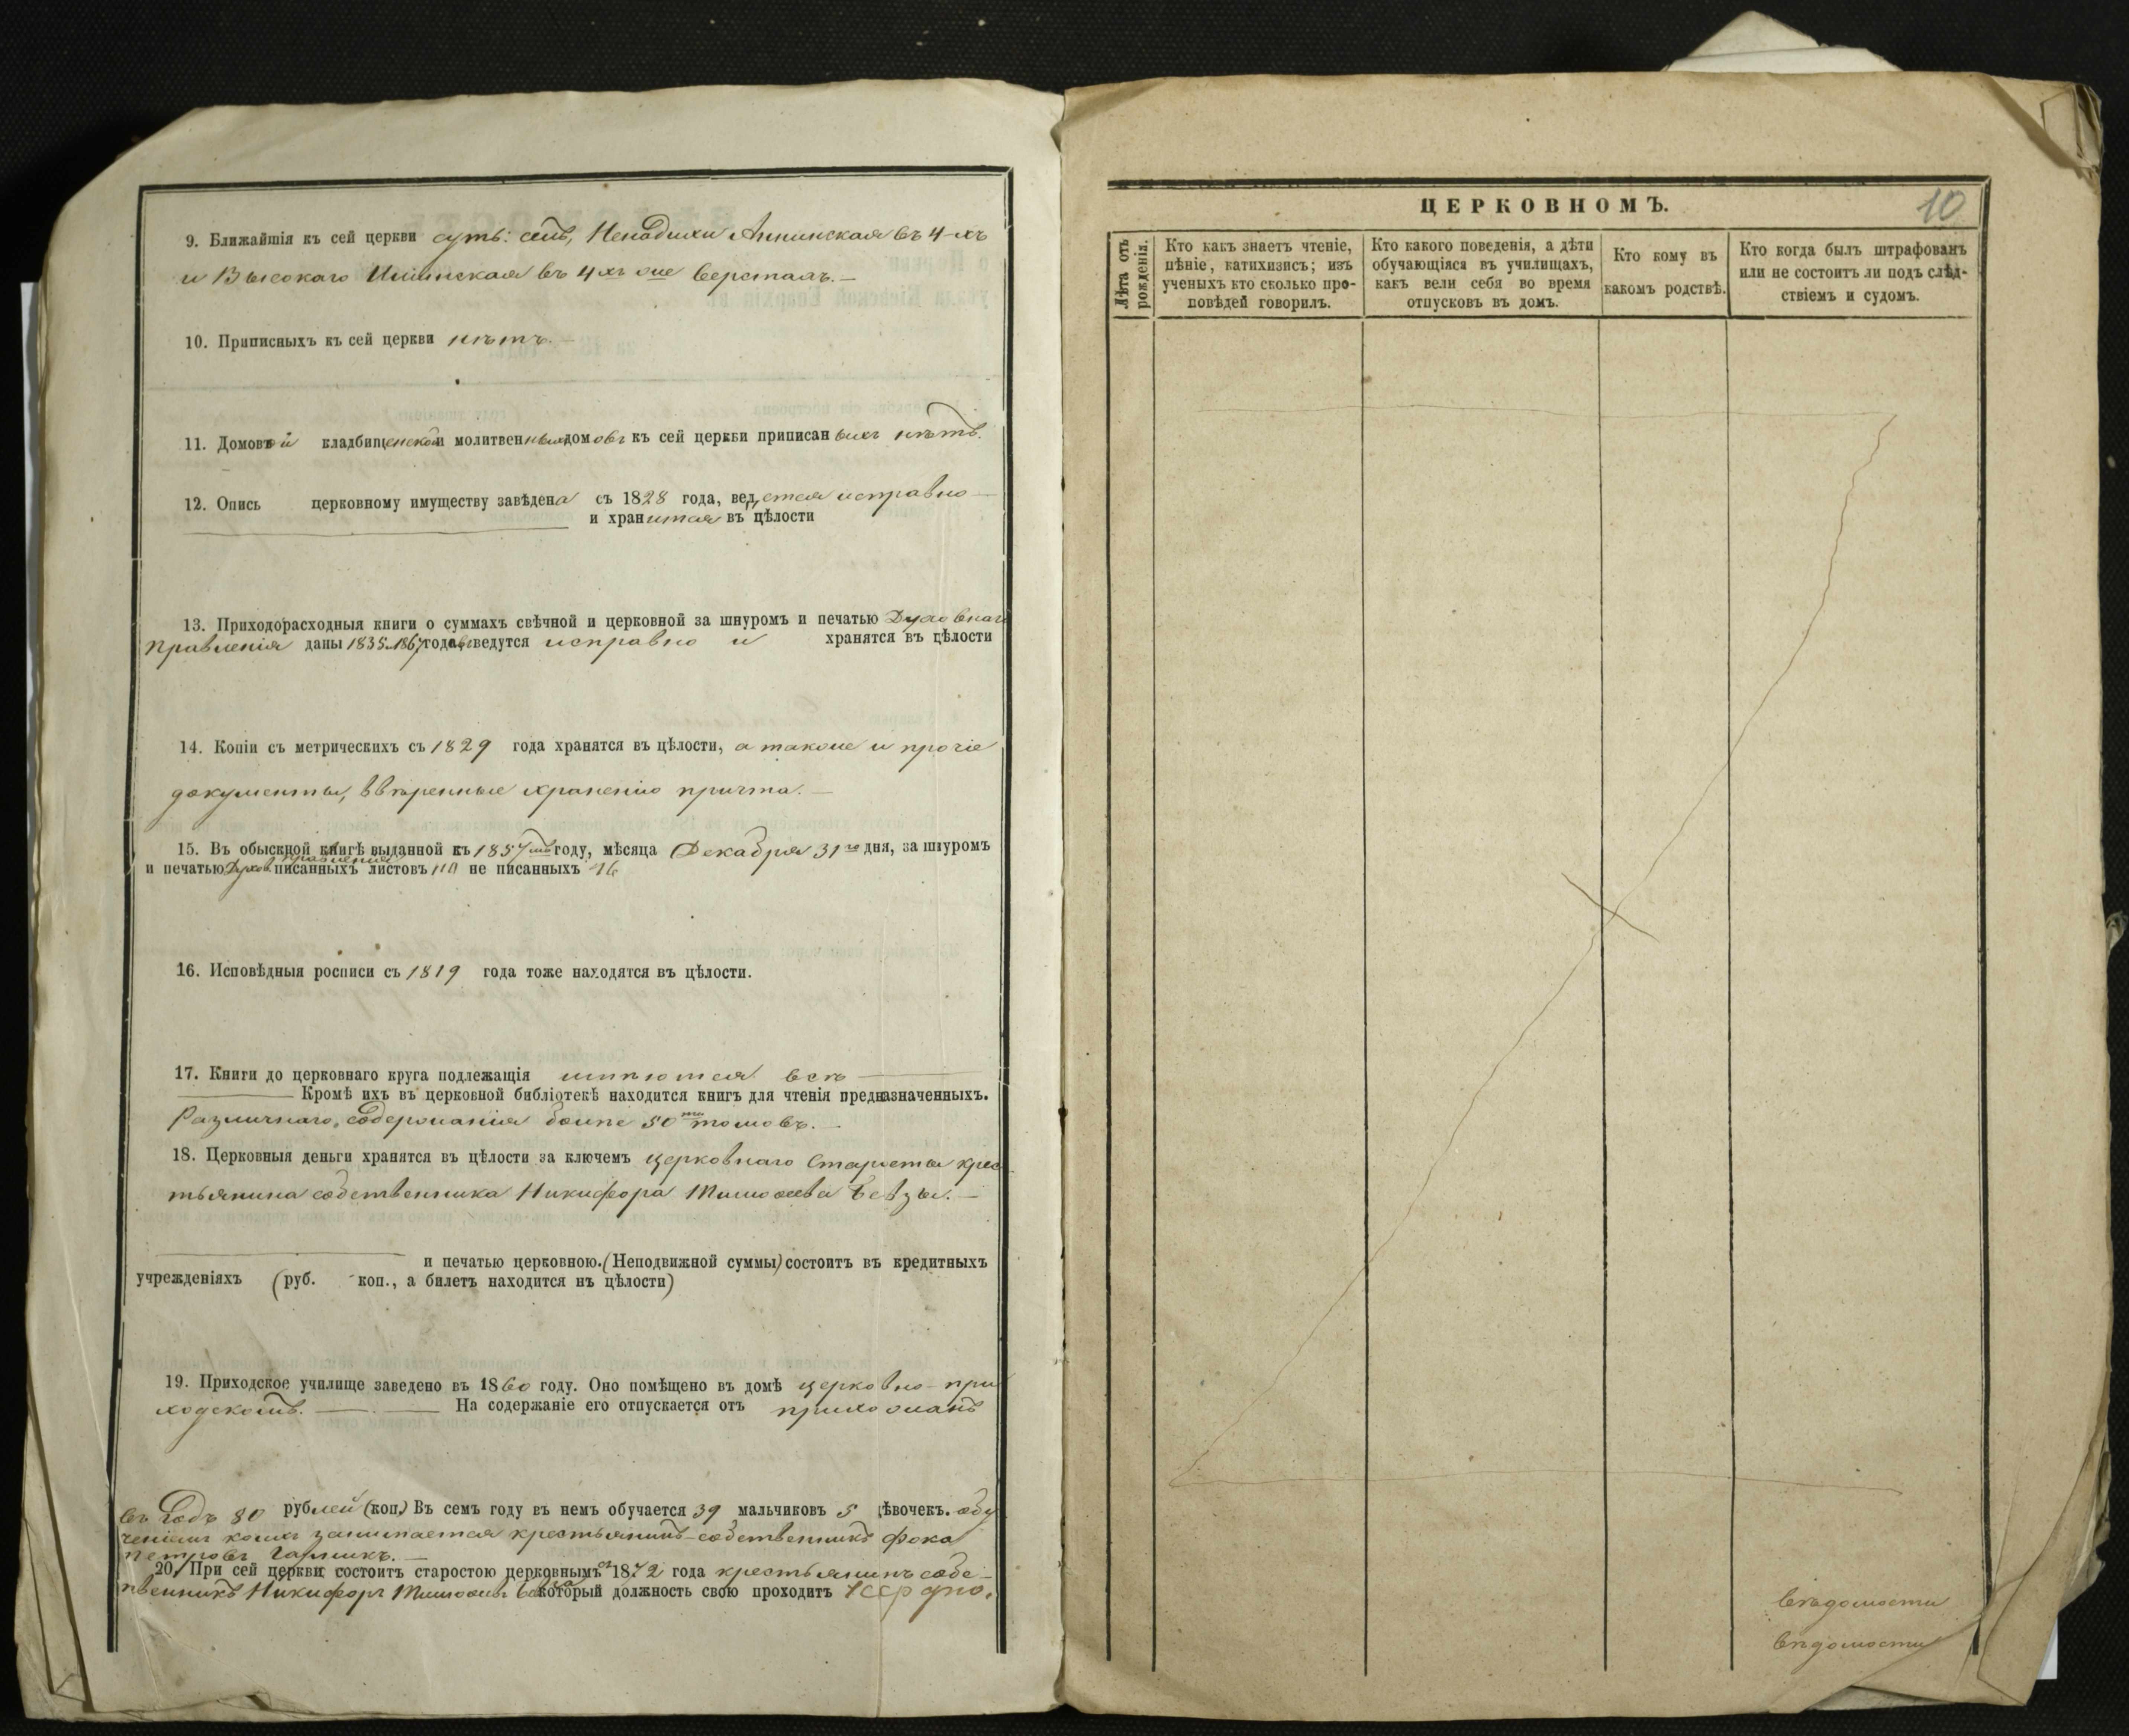 9. Ближайшія къ сей церкви суть: селъ, Ненадихи Аннинская въ 4-хъ
и Высокаго Ильинская въ 4хъ же верстахъ. —
10. Приписныхъ къ сей церкви нѣтъ. —
11. Домовой кладбищенской и молитвенныхъ домовъ къ сей церкви приписанныхъ нѣтъ.
12. Опись церковному имуществу заведена съ 1828 года, ведется исправно —
и хранится въ цѣлости
13. Приходорасходныя книги о суммахъ свѣчной и церковной за шнуромъ и печатью Духовнаго
Правленія даны 1835 и 1867 годовъ ведутся исправно и хранятся въ цѣлости
14. Копіи съ метрическихъ съ 1829 года хранятся въ цѣлости, а также и прочіе
документы, ввѣренные храненію причта. —
15. Въ обыскной книгѣ выданной въ 1857мъ году, мѣсяца Декабря 31го дня, за шнуромъ
и печатью Духов. правленія писанныхъ листовъ 110 не писанныхъ 16
16. Исповѣдныя росписи съ 1819 года тоже находятся въ цѣлости.
17. Книги до церковнаго круга подлежащія имѣются всѣ —
Кромѣ ихъ въ церковной библіотекѣ находится книгъ для чтенія предназначенныхъ.
Различнаго содержанія болѣе 50ти томовъ. —
18. Церковныя деньги хранятся въ цѣлости за ключемъ церковнаго Старосты крес
тьянина собственника Никифора Тимофеева Бевзы. —
и печатью церковною. (Неподвижной суммы) состоитъ въ кредитныхъ
учрежденіяхъ (руб. коп., а билетъ находится въ цѣлости)
19. Приходское училище заведено въ 1860 году. Оно помѣщено въ домѣ церковно-при
ходскомъ. — На содержаніе его отпускается отъ прихожанъ
въ годъ 80 рублей (коп.) Въ семъ году въ немъ обучается 39 мальчиковъ 5 дѣвочекъ. обу
ченіемъ коихъ занимается крестьянинъ-собственникъ Фока
Петровъ —
20. При сей церкви состоитъ старостою церковнымъ съ 1872 года крестьянинъ собс-
твенникъ Никифоръ Тимофеевъ Бевза который должность свою проходитъ усердно.
ЦЕРКОВНОМЪ.
10
Лѣта отъ рожденія.
Кто какъ знаетъ чтеніе,
пѣніе, катихизисъ; изъ
ученыхъ кто сколько про-
повѣдей говорилъ.
Кто какого поведенія, а дѣти
обучающіяся въ училищахъ,
какъ вели себя во время
отпусковъ въ домъ.
Кто кому въ
какомъ родствѣ.
Кто когда былъ штрафованъ
или не состоитъ ли подъ слѣд-
ствіемъ и судомъ.
вѣдомости
вѣдомости